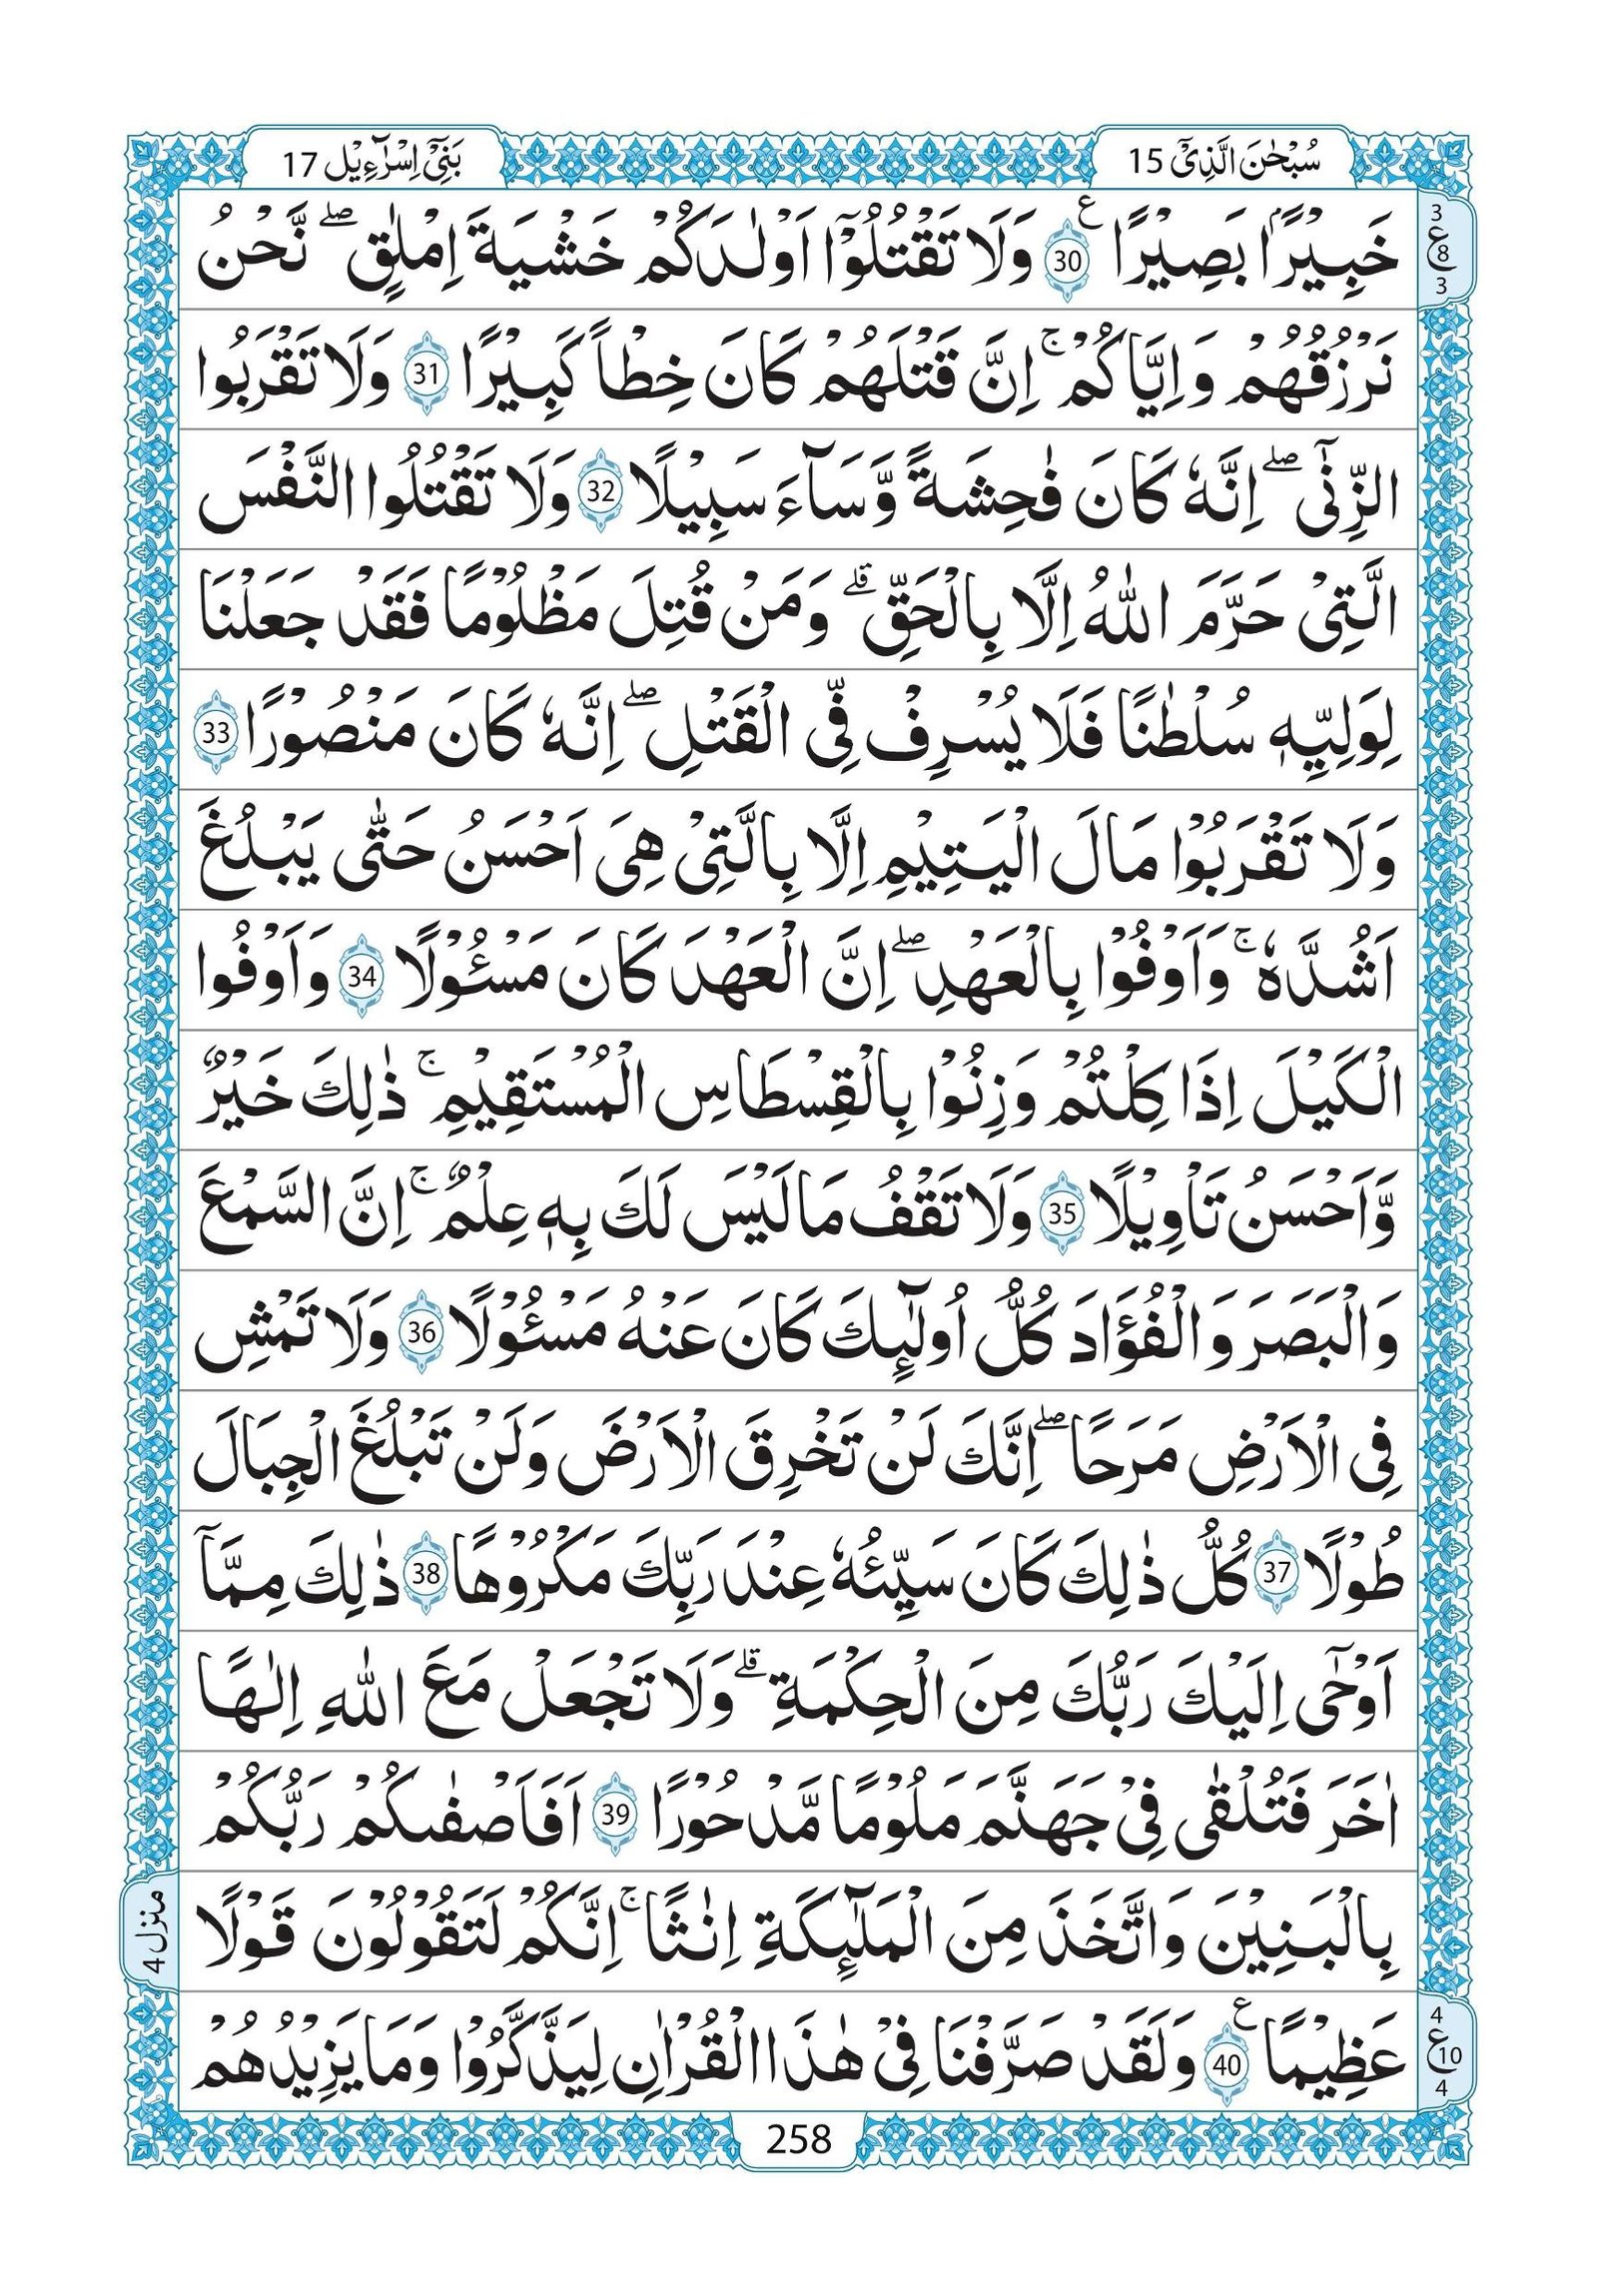 سُبْحٰنَ الَّذِیْۤ 15
بَنِیْۤ اِسْرَآءِیْل 17
خَبِیْرًۢا بَصِیْرًا ۧ 30 وَلَا تَقْتُلُوْۤا اَوْلٰدَكُمْ خَشْیَةَ اِمْلٰقٍ ۖ نَّحْنُ
3 ع 8 3
نَرْزُقُهُمْ وَاِیَّاكُمْ ۚ اِنَّ قَتْلَهُمْ كَانَ خِطْاً كَبِیْرًا 31 وَلَا تَقْرَبُوا
الزِّنٰۤی ۖ اِنَّهٗ كَانَ فٰحِشَةً وَّسَآءَ سَبِیْلًا 32 وَلَا تَقْتُلُوا النَّفْسَ
الَّتِیْ حَرَّمَ اللّٰهُ اِلَّا بِالْحَقِّ ۗ وَمَنْ قُتِلَ مَظْلُوْمًا فَقَدْ جَعَلْنَا
لِوَلِیِّهٖ سُلْطٰنًا فَلَا یُسْرِفْ فِّی الْقَتْلِ ۖ اِنَّهٗ كَانَ مَنْصُوْرًا 33
وَلَا تَقْرَبُوْا مَالَ الْیَتِیْمِ اِلَّا بِالَّتِیْ هِیَ اَحْسَنُ حَتّٰی یَبْلُغَ
اَشُدَّهٗ ۚ وَاَوْفُوْا بِالْعَهْدِ ۖ اِنَّ الْعَهْدَ كَانَ مَسْـُٔوْلًا 34 وَاَوْفُوا
الْكَیْلَ اِذَا كِلْتُمْ وَزِنُوْا بِالْقِسْطَاسِ الْمُسْتَقِیْمِ ۚ ذٰلِكَ خَیْرٌ
وَّاَحْسَنُ تَاْوِیْلًا 35 وَلَا تَقْفُ مَا لَیْسَ لَكَ بِهٖ عِلْمٌ ۚ اِنَّ السَّمْعَ
وَالْبَصَرَ وَالْفُؤَادَ كُلُّ اُولٰٓئِكَ كَانَ عَنْهُ مَسْـُٔوْلًا 36 وَلَا تَمْشِ
فِی الْاَرْضِ مَرَحًا ۖ اِنَّكَ لَنْ تَخْرِقَ الْاَرْضَ وَلَنْ تَبْلُغَ الْجِبَالَ
طُوْلًا 37 كُلُّ ذٰلِكَ كَانَ سَیِّئُهٗ عِنْدَ رَبِّكَ مَكْرُوْهًا 38 ذٰلِكَ مِمَّاۤ
اَوْحٰۤی اِلَیْكَ رَبُّكَ مِنَ الْحِكْمَةِ ۗ وَلَا تَجْعَلْ مَعَ اللّٰهِ اِلٰهًا
اٰخَرَ فَتُلْقٰی فِیْ جَهَنَّمَ مَلُوْمًا مَّدْحُوْرًا 39 اَفَاَصْفٰىكُمْ رَبُّكُمْ
بِالْبَنِیْنَ وَاتَّخَذَ مِنَ الْمَلٰٓئِكَةِ اِنٰثًا ۚ اِنَّكُمْ لَتَقُوْلُوْنَ قَوْلًا
منزل 4
عَظِیْمًا ۧ 40 وَلَقَدْ صَرَّفْنَا فِیْ هٰذَا الْقُرْاٰنِ لِیَذَّكَّرُوْا وَمَا یَزِیْدُهُمْ
4 ع 10 4
258